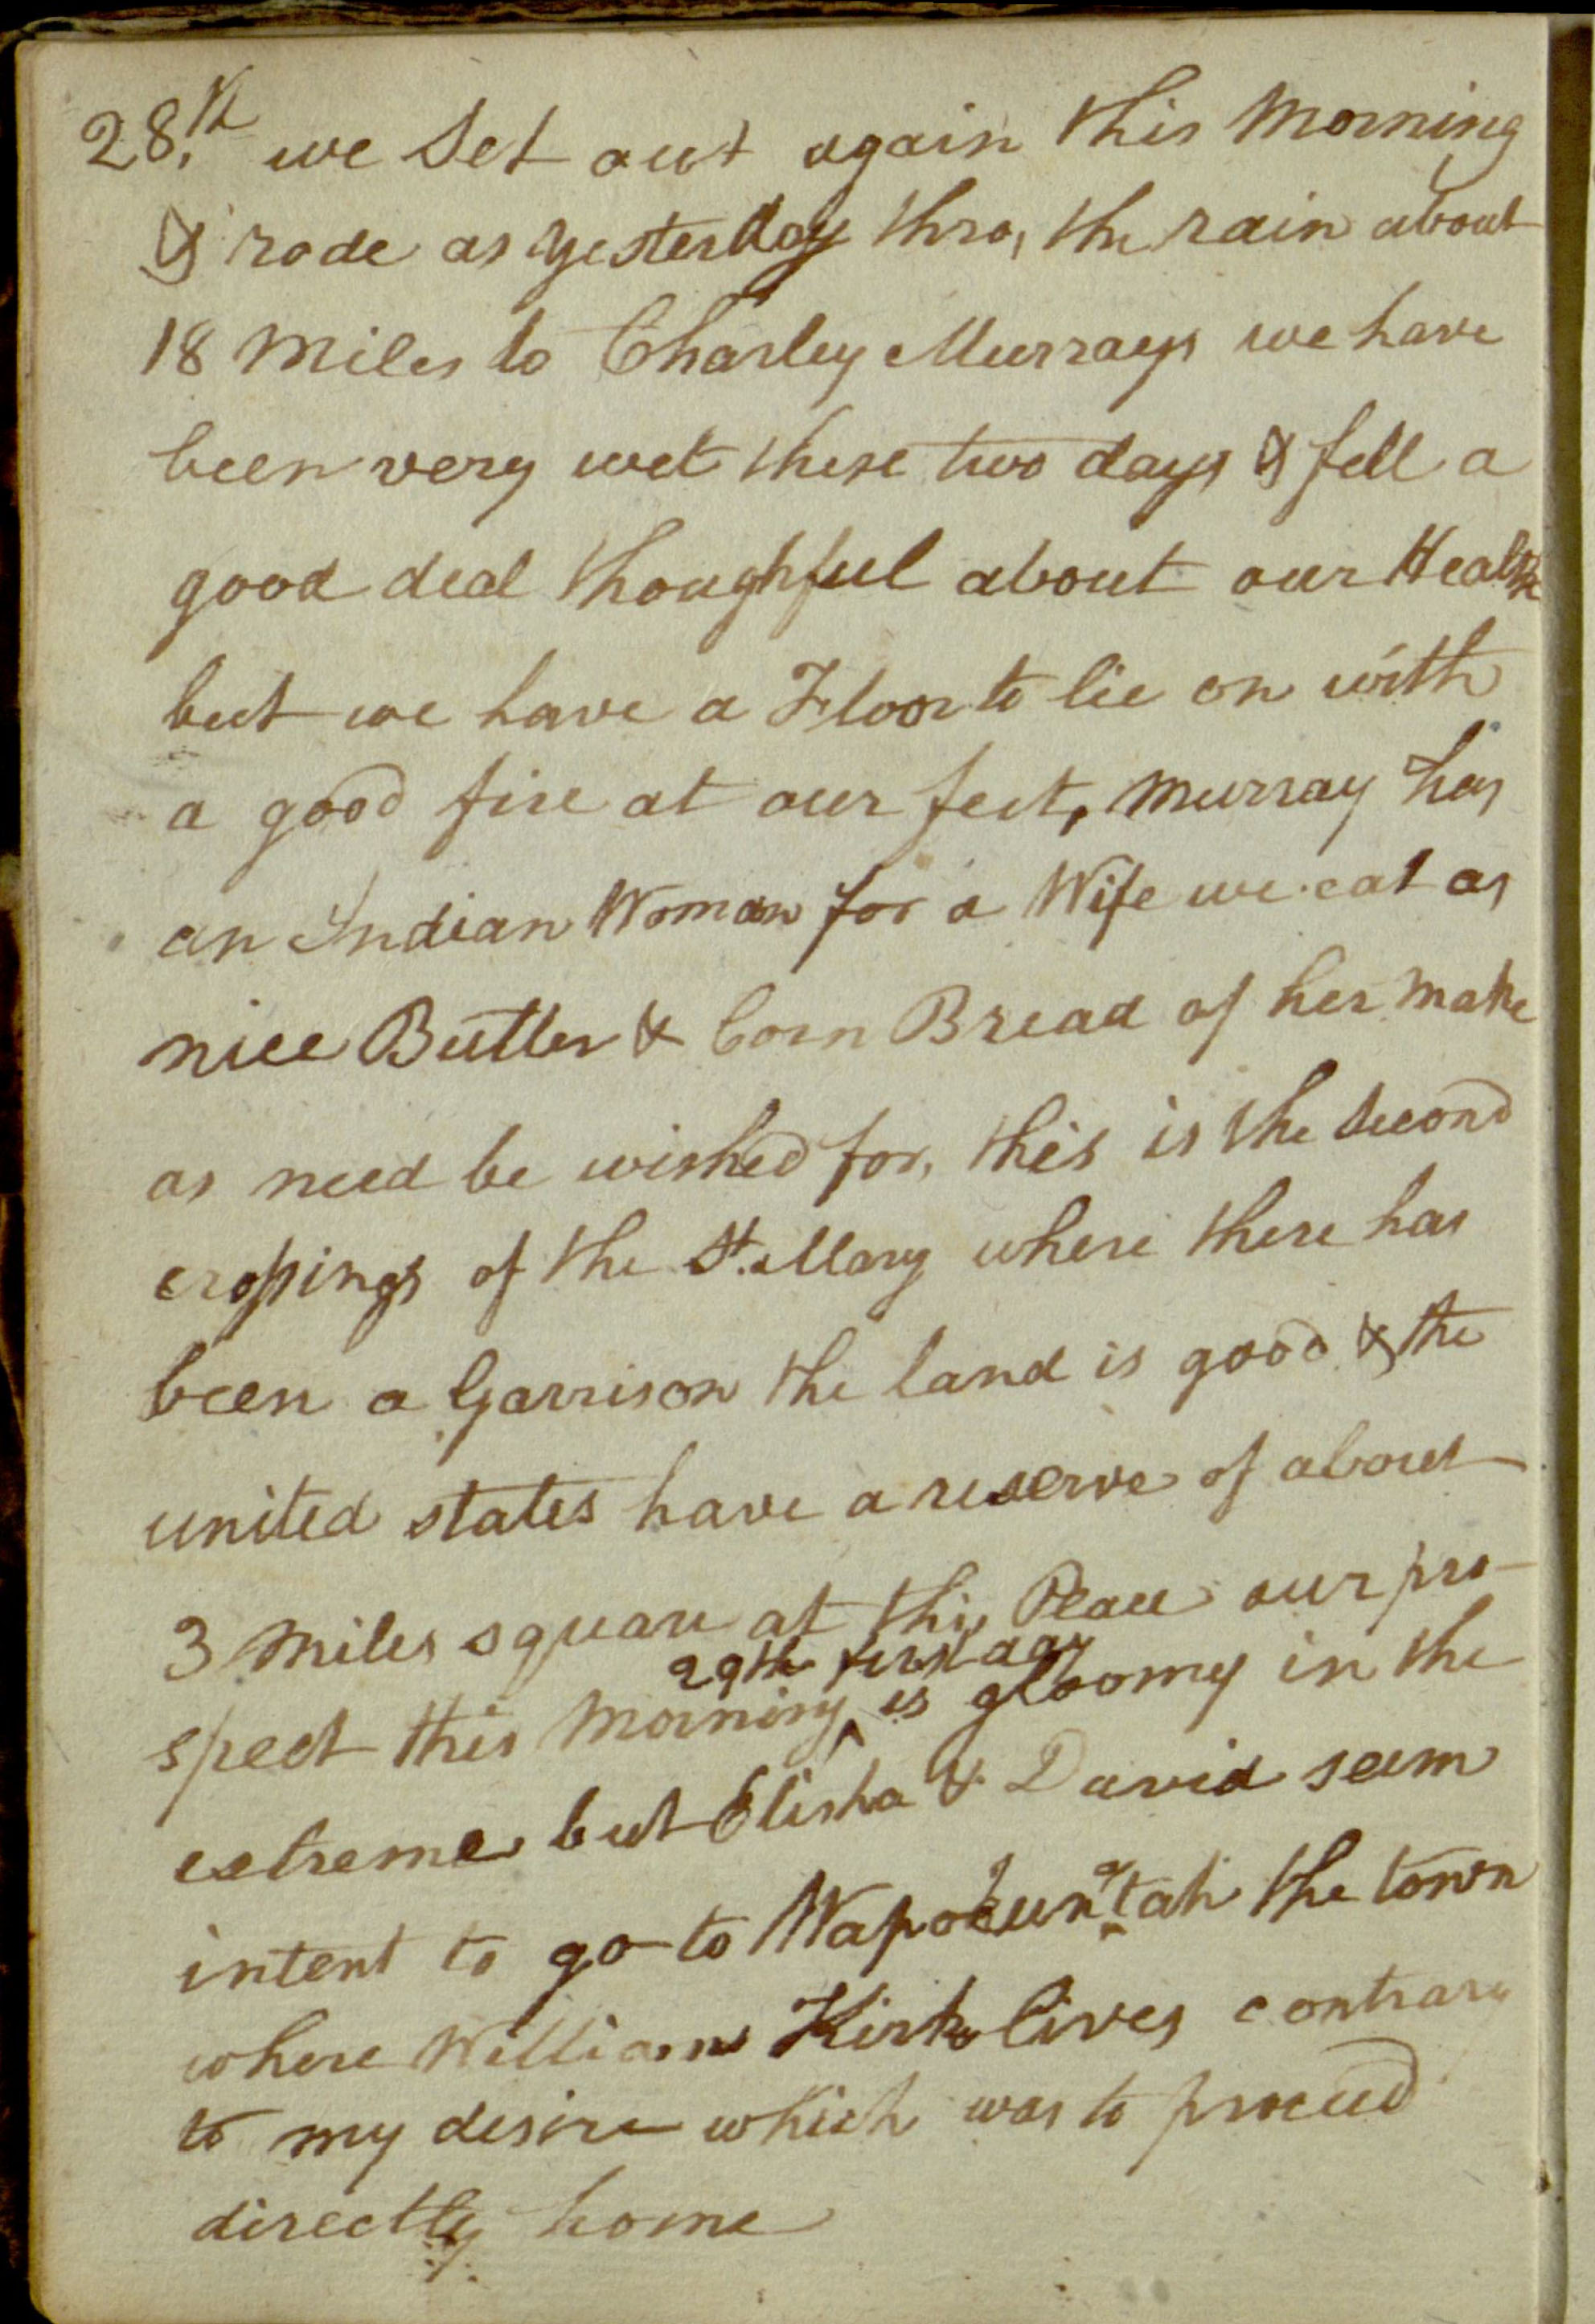 28.th we Set out again this Morning
& rode as Yesterday thro, the rain about
18 Miles to Charley Murrays we have
been very wet these two days & fell a
good deal thoughful about our Health
but we have a Floor to lie on with
a good fire at our feet, Murray has
an Indian Woman for a Wife we eat as
nice Butter & Corn Bread of her make
as need be wished for, this is the Second
crossings of the St. Mary where there has
been a Garrison the land is good & the
united states have a reserve of about
3 Miles square at this Place our pro-
29th first day
spect this Morning ^ is gloomy in the
extreme but Elisha & David seem
intent to go to Wapocun^atah the town
where William Kirk lives contrary
to my desire which was to proceed
directly home